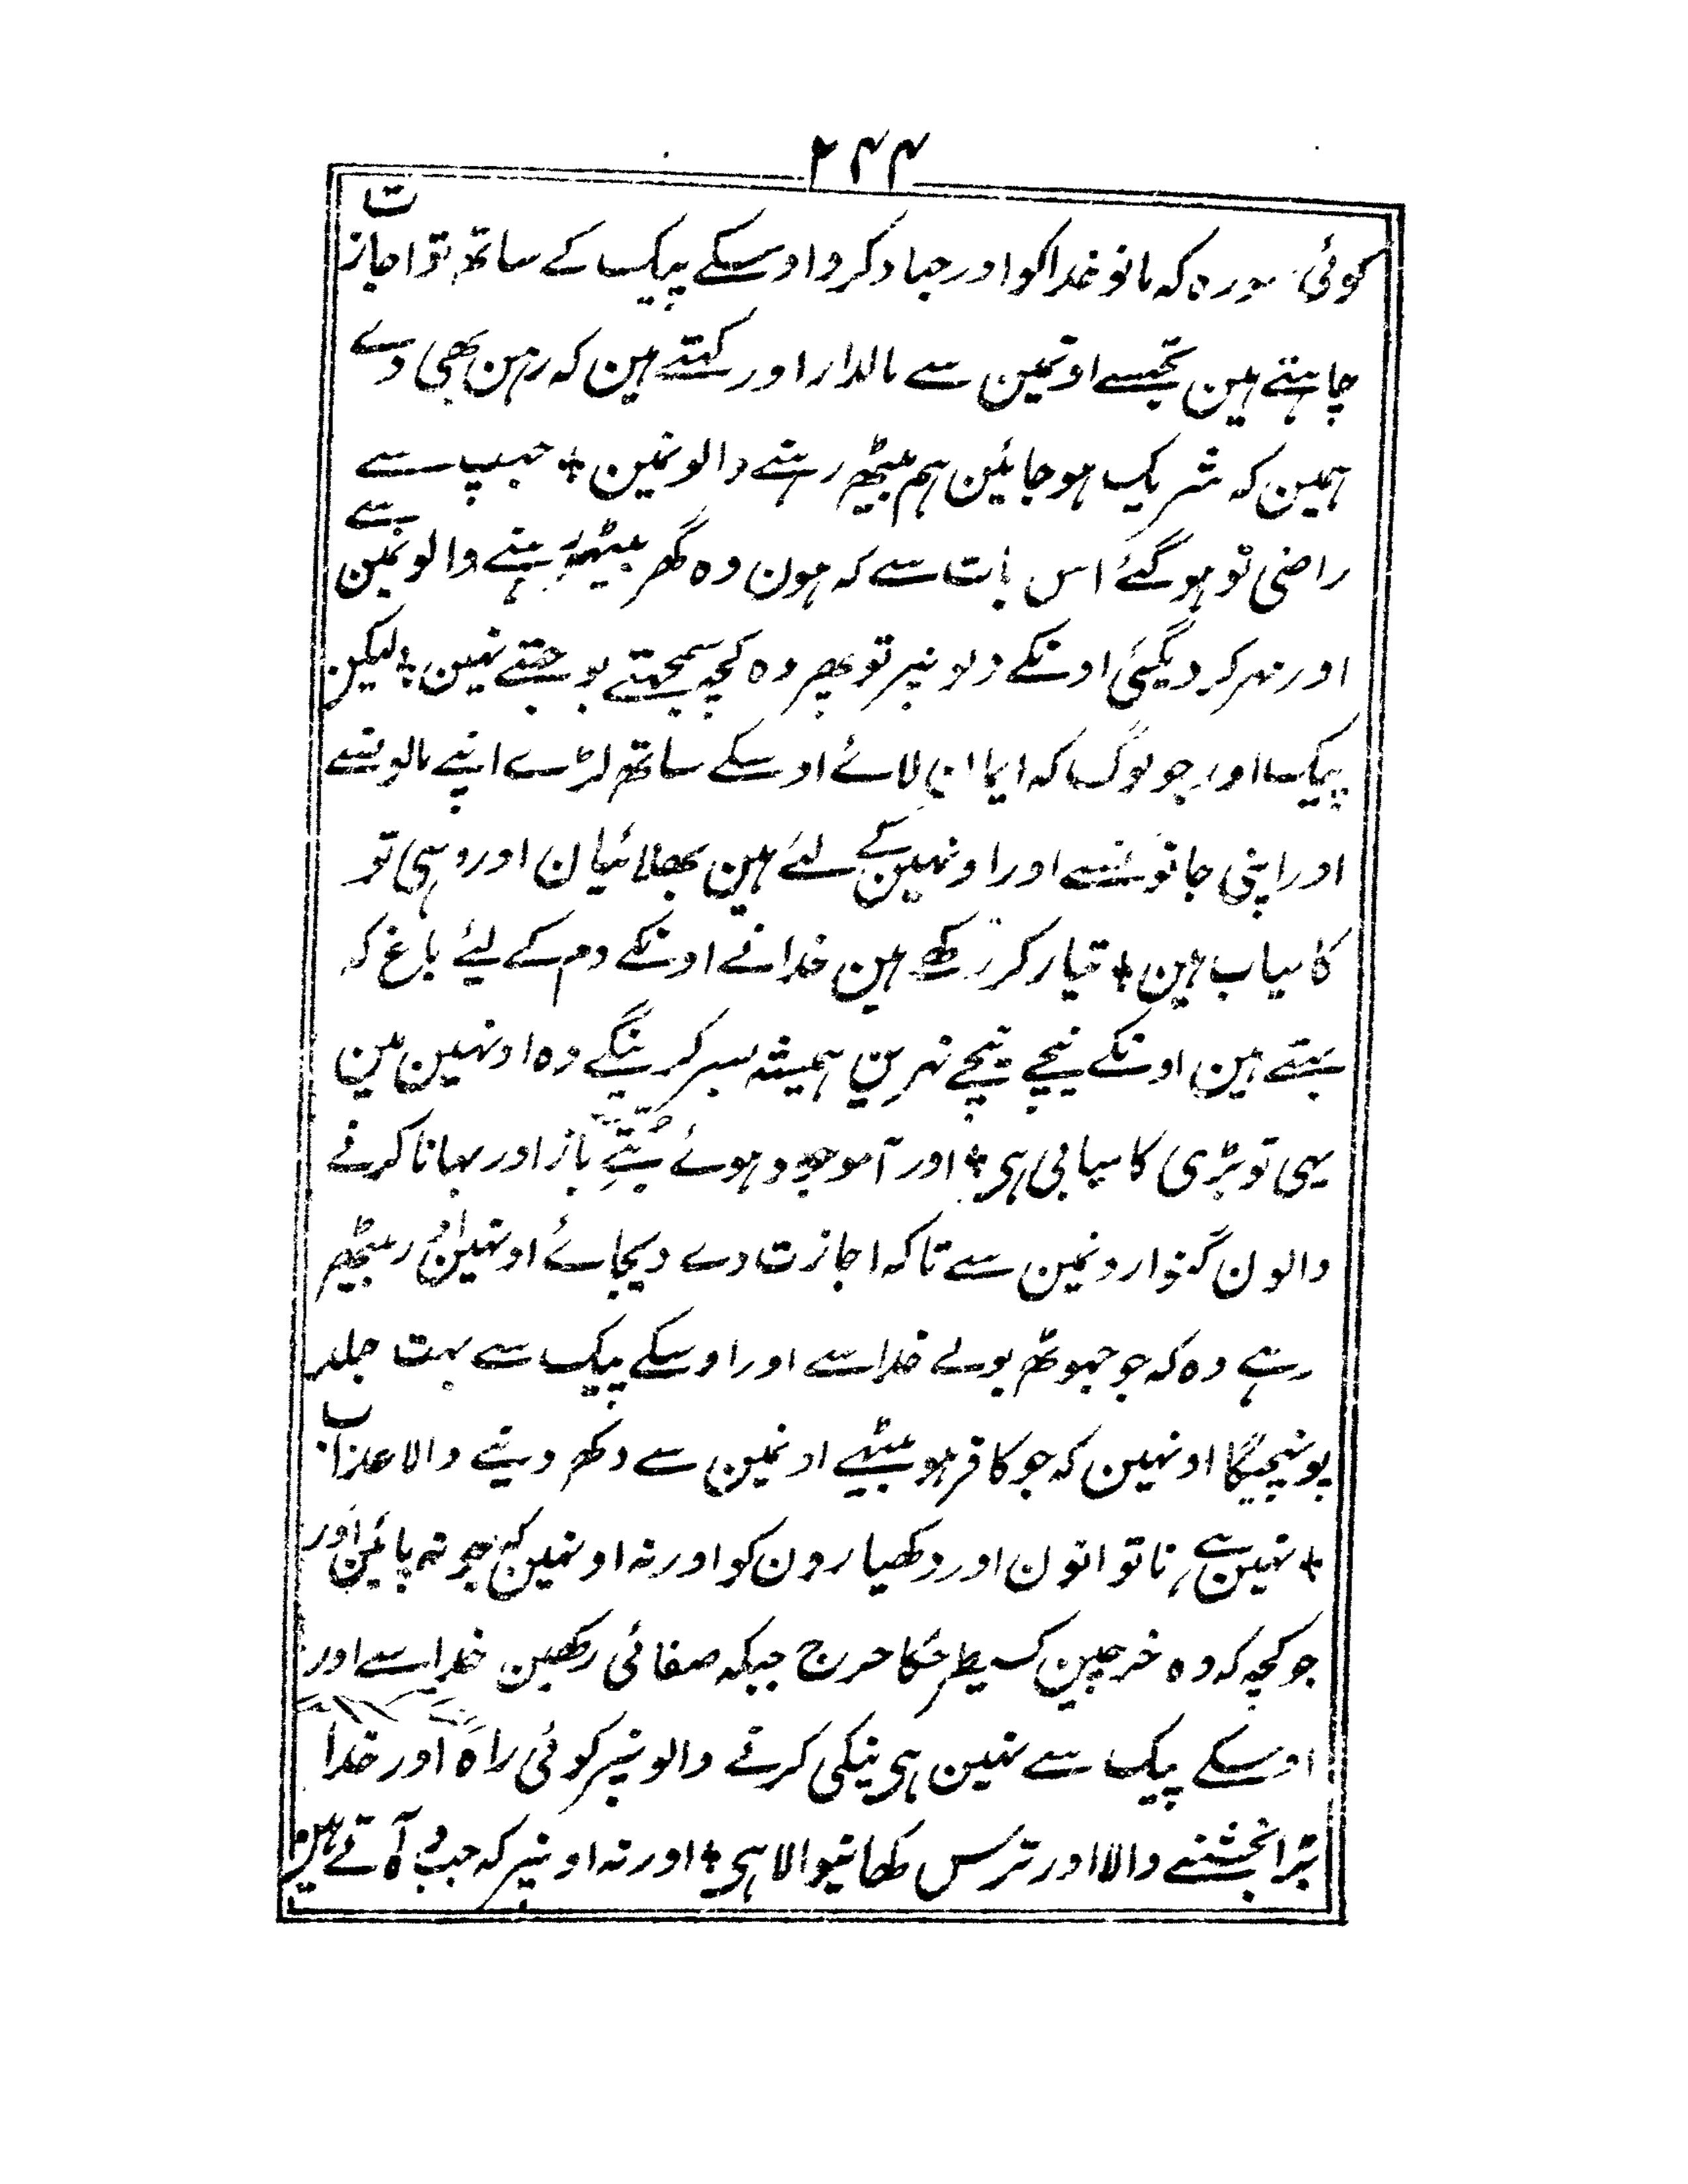 ۲۴۴
کوئی سورہ کہ مانو خدا کو اور جہاد کرو اوسکے پیک کے ساتھ تو اجازت
چاہتے ہین تجھسے اونمین سے مالدار اور کہتے ہین کہ رہن بھی دے
ہمین کہ شریک ہو جائین ہم بیٹھ رہنے والونمین + جیپ سے
راضی تو ہو گئے اس بات سے کہ ہون وہ گھر بیٹھہ رہنے والونمین سے
اور مہر کر دیگئی اونکے دلونپر تو پھر وہ کچھ سمجھتے بوجھتے نہین + لیکن
پیک اور جو لوگ کہ ایمان لائے اوسکے ساتھ لڑے اپنے مالونسے
اور اپنی جانونسے اور اونہین کے لئے ہین بھلائیان اور وہی تو
کامیاب ہین + تیار کر رکھے ہین خدا نے اونکے دم کے لیئے باغ کہ
بہتے ہین اونکے نیچے نیچے نہرین ہمیشہ بسر کرینگے وہ اونہین مین
یہی تو بڑی کامیابی ہی + اور آ موجود ہوئے بتے باز اور بہانا کرنے
والون گنوارونمین سے تاکہ اجازت دے دیجائے اونہین اور بیٹھ
رہے وہ کہ جو جھوٹھ بولے خدا سے اور اوسکے پیک سے بہت جلد
پونہچیگا اونہین کہ جو کافر ہو بیٹھے اونمین سے دکھ دینے والا عذاب
+ نہین ہے ناتوانون اور دکھیارون کو اور نہ اونہین کہ جو نہ پائین اور
جو کچھ کہ وہ خرچین کسیطرحکا حرج جبکہ صفائی رکھین خدا سے اور
اوسکے پیک سے نہین ہی نیکی کرنے والونپر کوئی راہ اور خدا
بڑا بخشنے والا اور ترس کھانیوالا ہی + اور نہ اونپر کہ جب وہ آتے ہین